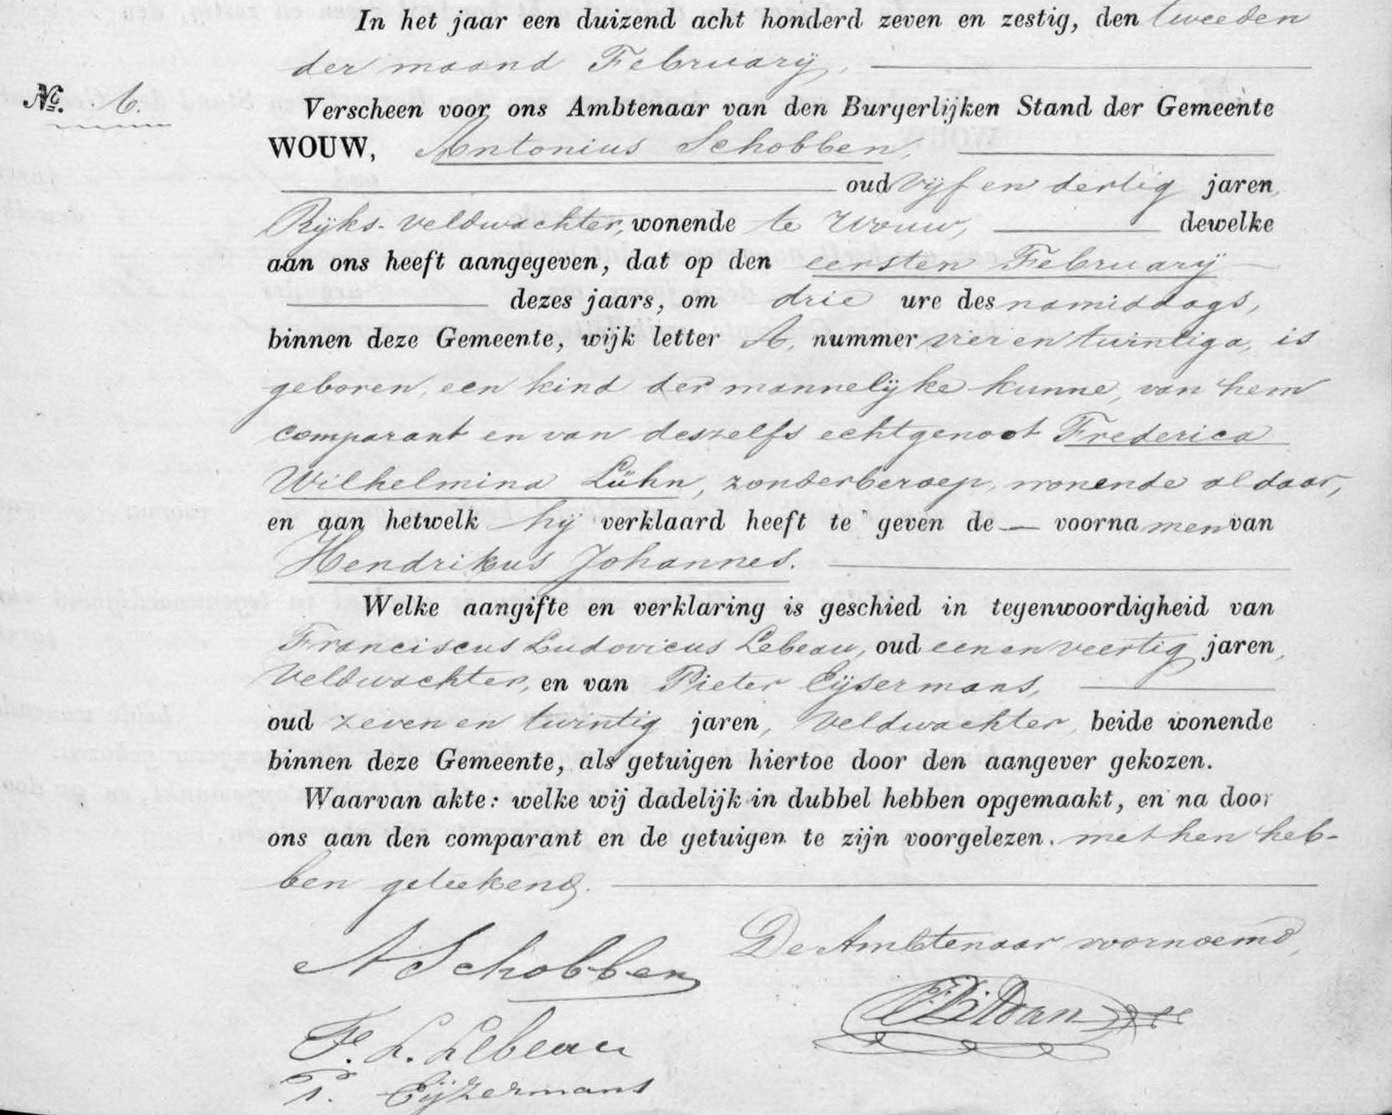 In het jaar een duizend acht honderd zeven en zestig, den tweeden
der maand Februarij,
No. 6.
Verscheen voor ons Ambtenaar van den Burgerlijken Stand der Gemeente
WOUW, Antonius Schobben,
oud vijf en dertig jaren,
Rijks-veldwachter, wonende te Wouw, dewelke
aan ons heeft aangegeven, dat op den eersten Februarij
dezes jaars, om drie ure des namiddags,
binnen deze Gemeente, wijk letter A, nummer vier en twintig a, is
geboren, een kind der mannelijke kunne, van hem
comparant en van deszelfs echtgenoot Frederica
Wilhelmina Lühn, zonder beroep, wonende aldaar,
en aan hetwelk hij verklaard heeft te geven de voornamen van
Hendrikus Johannes.
Welke aangifte en verklaring is geschied in tegenwoordigheid van
Franciscus Ludovicus Lebeau, oud een en veertig jaren,
Veldwachter, en van Pieter Eijsermans,
oud zeven en twintig jaren, Veldwachter, beide wonende
binnen deze Gemeente, als getuigen hiertoe door den aangever gekozen.
Waarvan akte: welke wij dadelijk in dubbel hebben opgemaakt, en na door
ons aan den comparant en de getuigen te zijn voorgelezen. met hen heb-
ben geteekend.
A Schobben
De Ambtenaar voornoemd,
F. L. Lebeau
P. Eijzermans